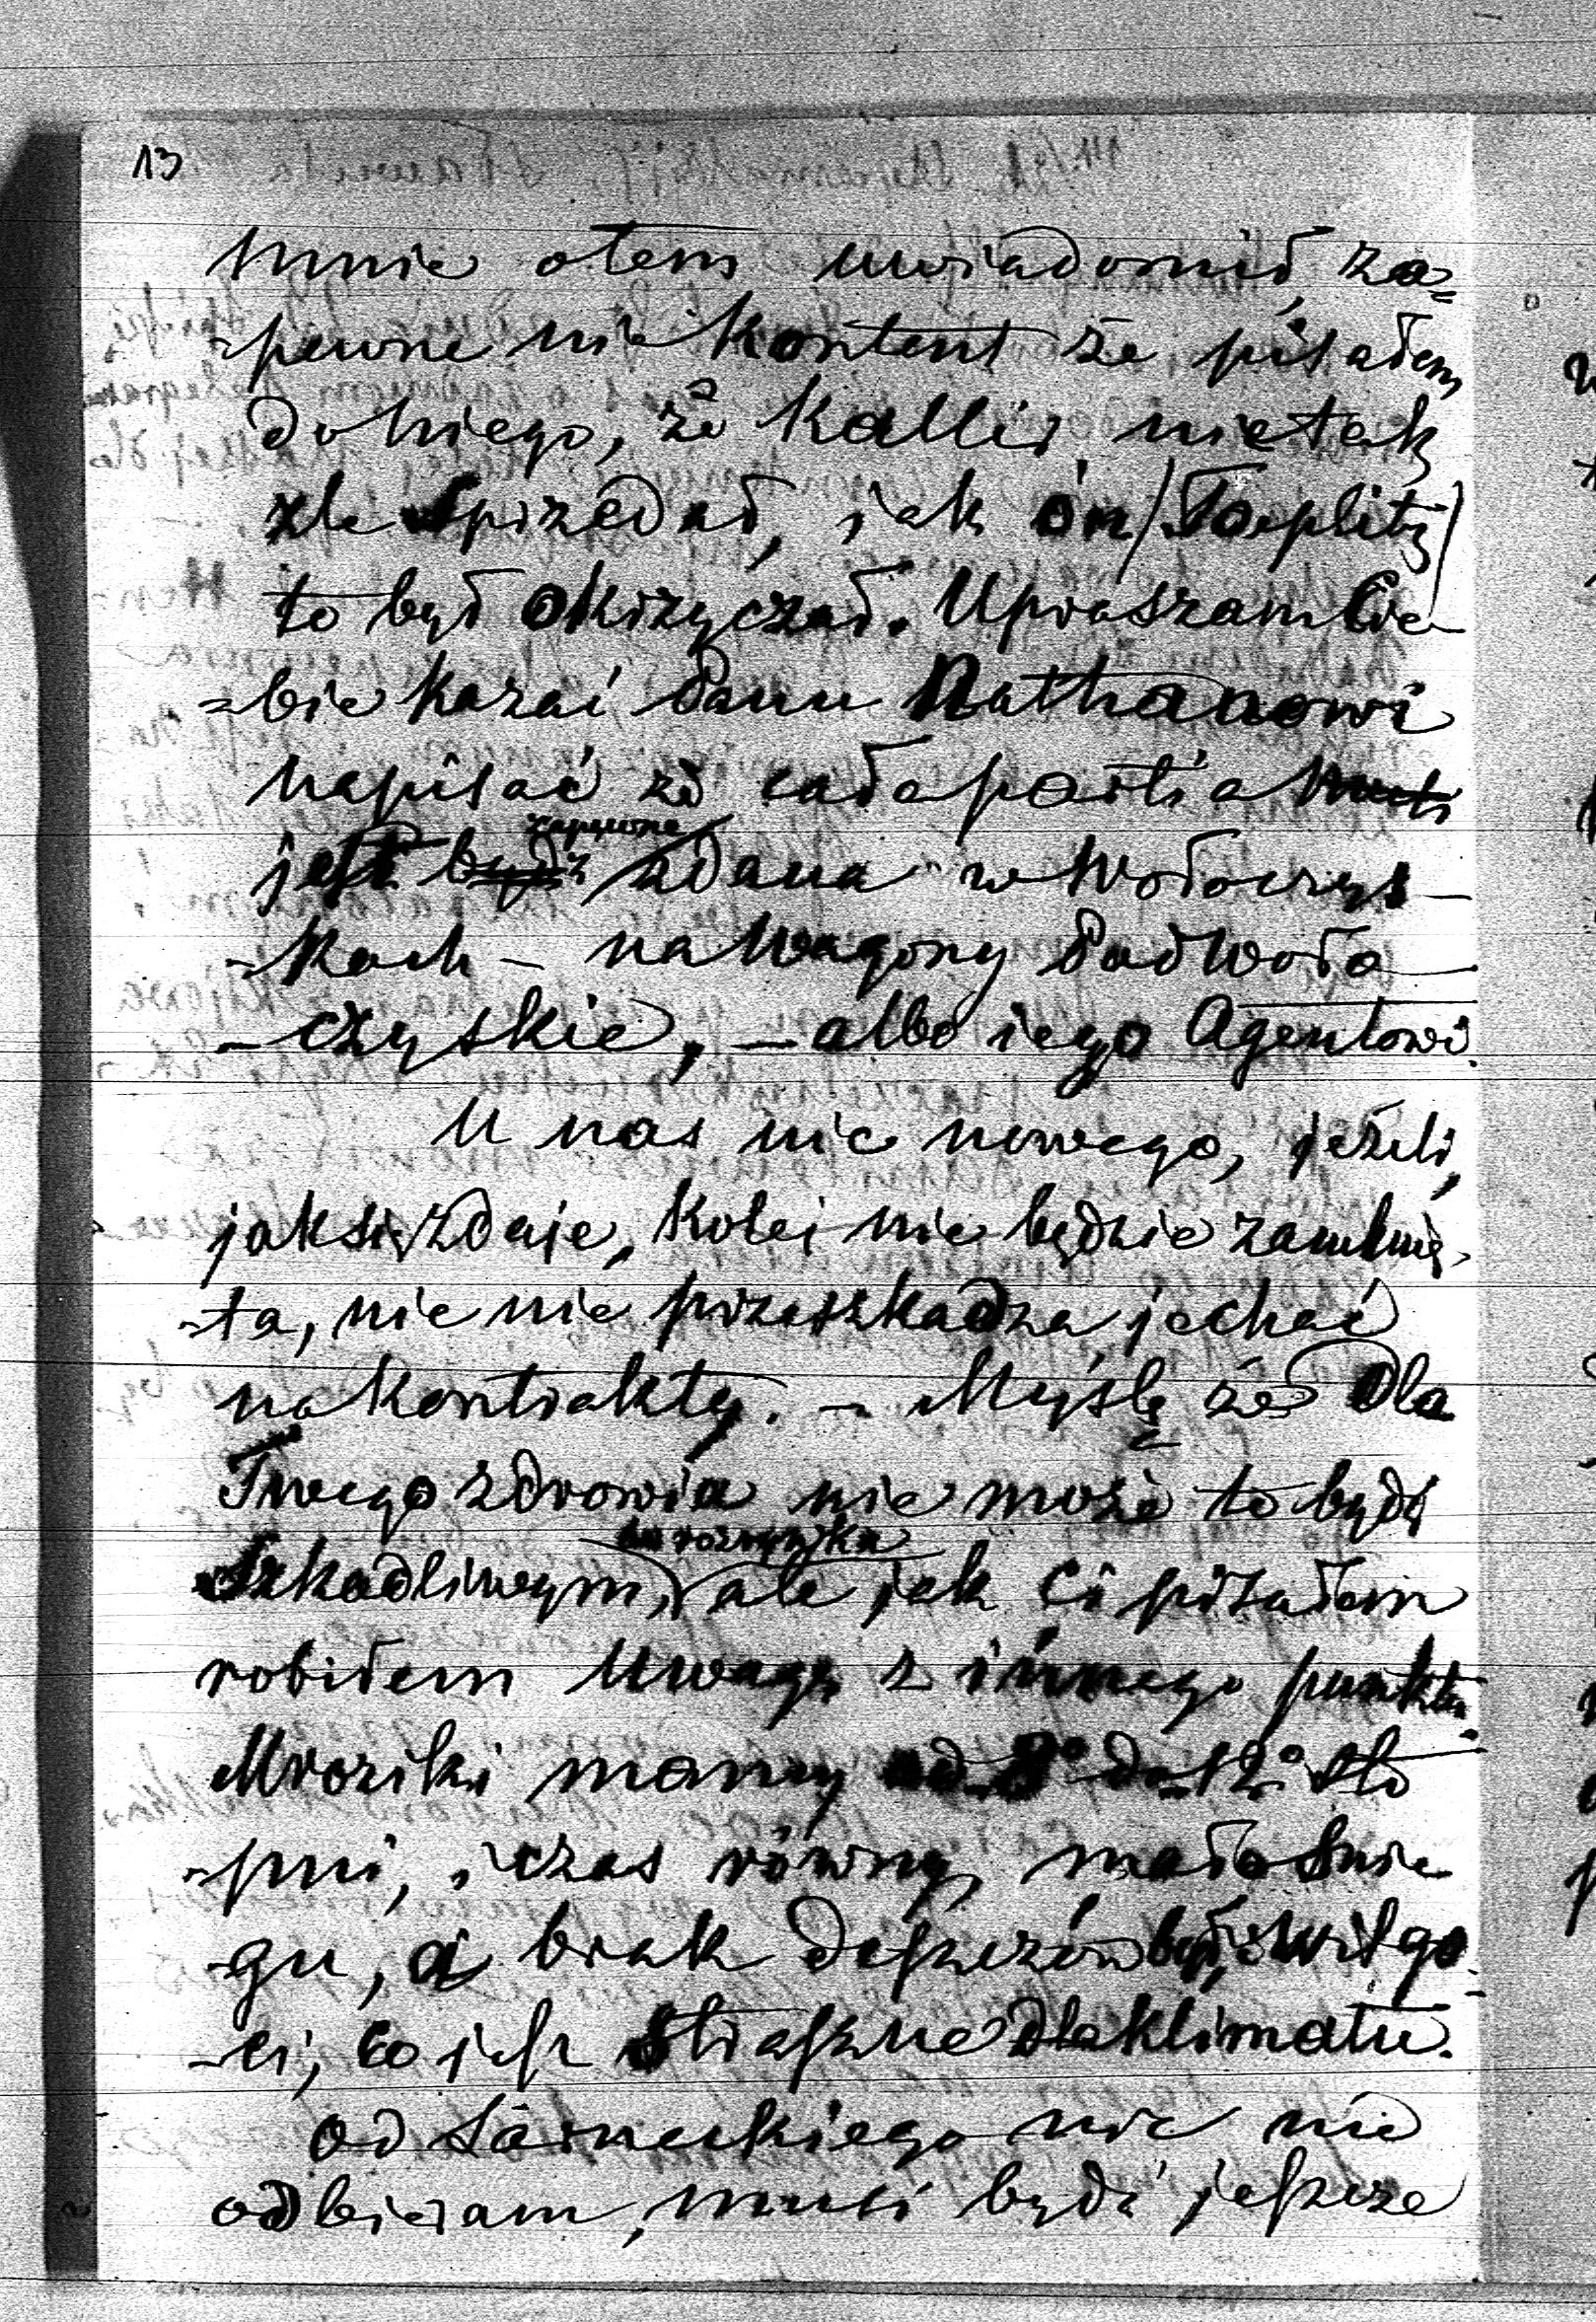 13
mnie otem uwiadomił za=
-pewne nie kontent że pisałem
do niego, że Kallir nie tak
źle sprzedał, jak ón /Toeplitz/
to był okrzyczał. Upraszam Cie-
=bie kazać Panu Nathanowi
napisać że cała partia
jest zapewne zdana w Wołoczys-
-kach - na Wagony Podwoło-
-czyskie, - albo iego Agentowi.
U nas nic nowego, jeżeli,
jak się zdaje, kolej nie będzie zamknię-
-ta, nic nie przeszkadza jechać
na kontrakty. - Myślę że dla
Twego zdrowia nie może to bydź
szkodliwym, ale jak Ci pisałem
robiłem uwagę z innego punktu.
Mroziki mamy od 8° do 12° sto
-pni, i czas równy, mało śnie
-gu, a brak deszczów był, i wilgo-
-ci, co jest straszne dla klimatu.
od Sarneckiego nic nie
odbieram, musi bydź jeszcze